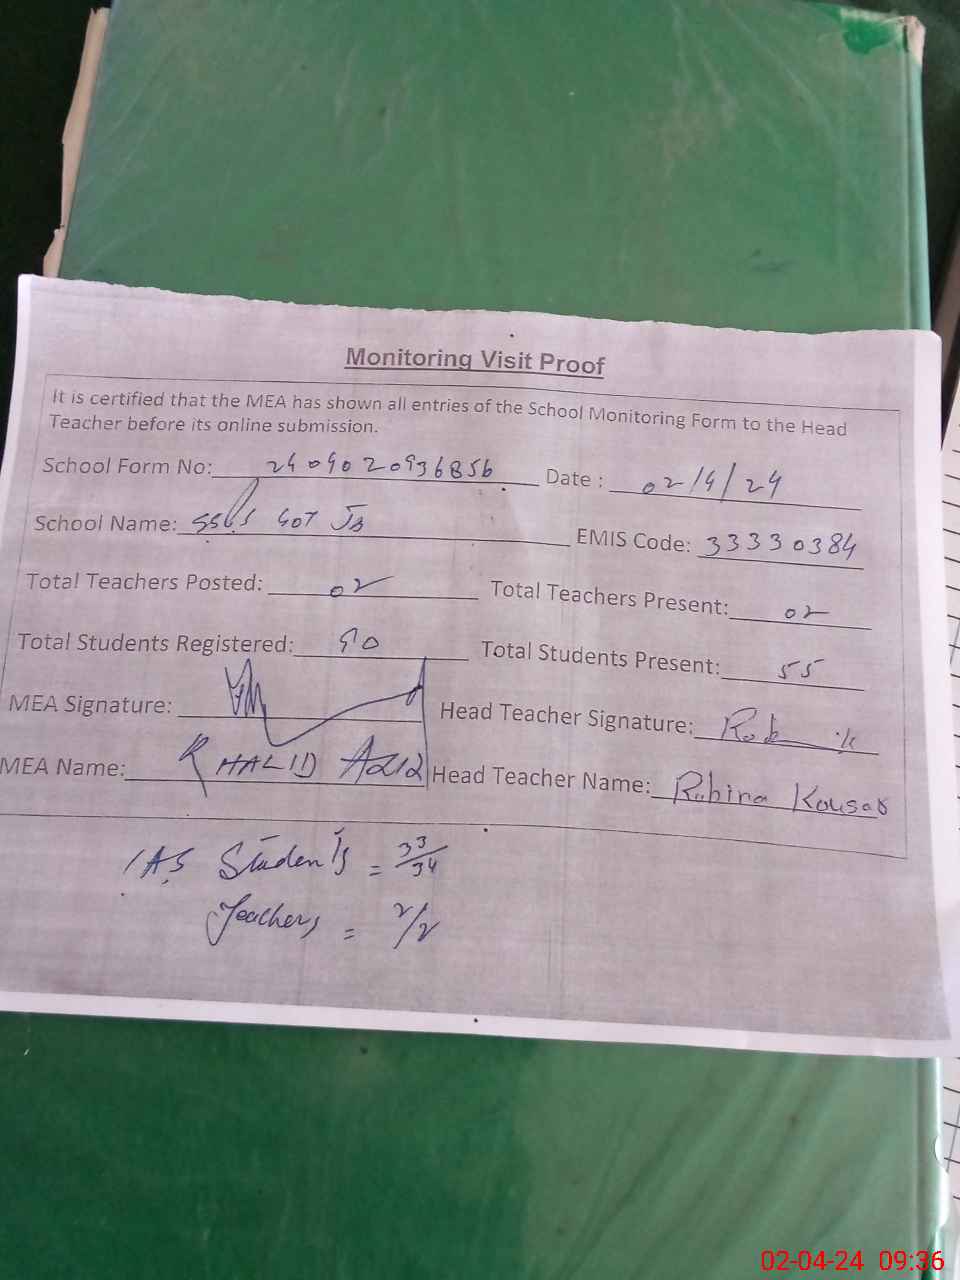 Monitoring Visit Proof
It is certified that the MEA has shown all entries of the School Monitoring Form to the Head
Teacher before its online submission.
School Form No: 2404020936856 Date : 02/4/24
School Name: 407 JB EMIS Code: 33330384
Total Teachers Posted: 02 Total Teachers Present: 02
Total Students Registered: 90 Total Students Present: 55
MEA Signature: Head Teacher Signature:
MEA Name: KHALID AZIZ Head Teacher Name: Rubina Kousar
Students = 33/34
Teachers = 2/2
02-04-24 09:36